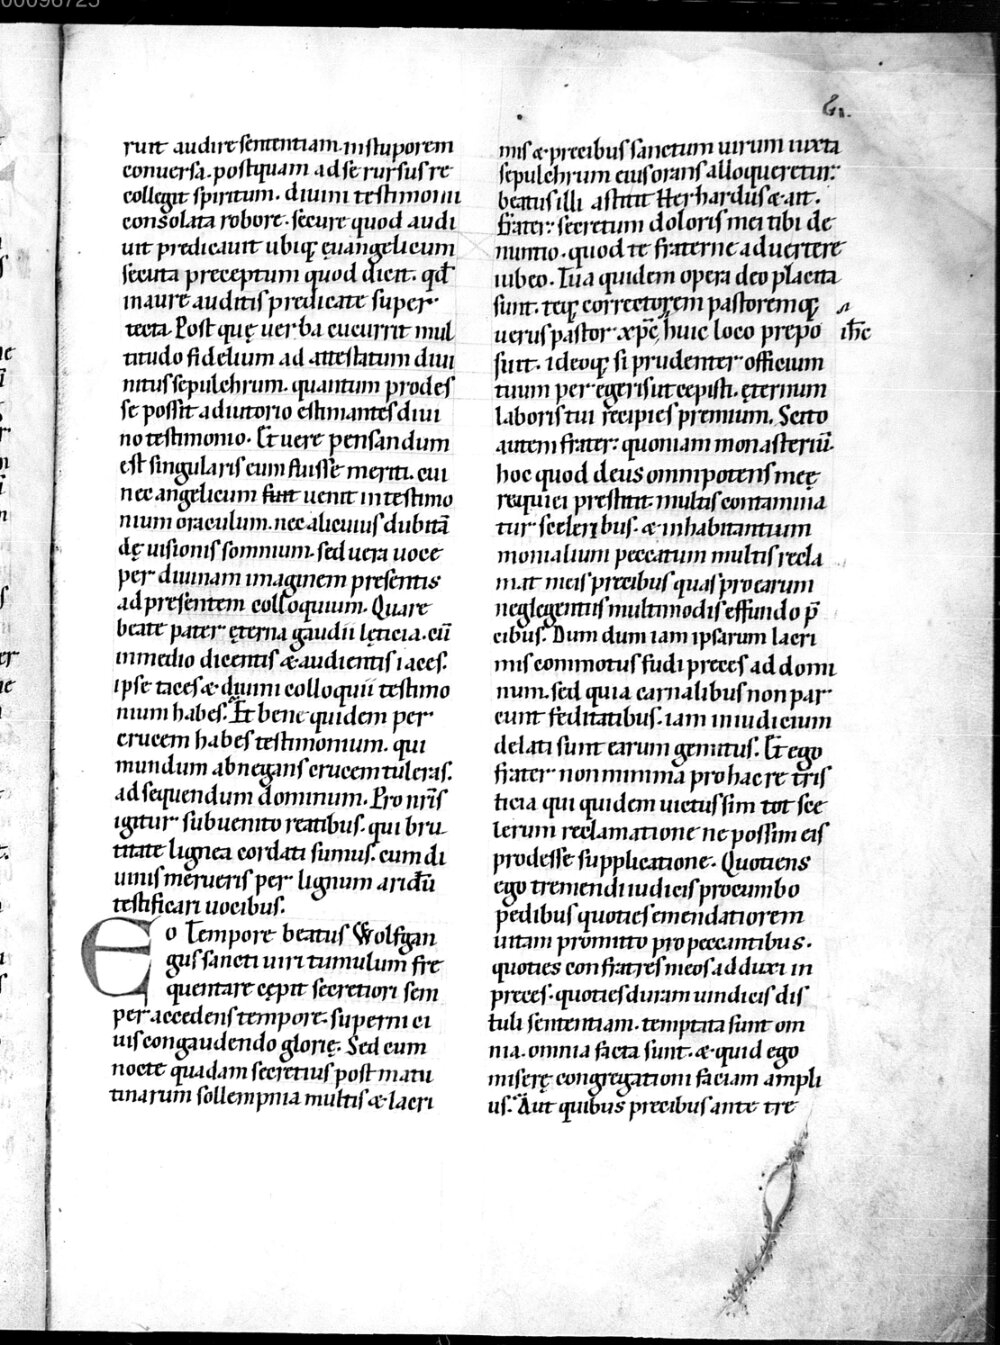 00096725
runt audire sententiam. in stuporem
conuersa. postquam ad se rursus re
collegit spiritum. diuini testimonii
consolata robore. secure quod audi
uit predicauit ubiq; euangelicum
secuta preceptum quod dicit. qđ
in aure auditis predicate super
tecta. Post quę uerba cucurrit mul
titudo fidelium ad attestatum diui
nitus sepulchrum. quantum prodes
se possit adiutorio estimantes diui
no testimonio. Et uere pensandum
est singularis eum fuisse meriti. cui
nec angelicum uenit in testimo
nium oraculum. nec alicuius dubitā
dę uisionis somnium. sed uera uoce
per diuinam imaginem presentis
ad presentem colloquium. Quare
beate pater ęterna gaudii lęticia. cū
in medio dicentis & audientis iaces.
ipse taces & diuini colloquii testimo
nium habes. Et bene quidem per
crucem habes testimonium. qui
mundum abnegans crucem tuleras.
ad sequendum dominum. Pro nr̄is
igitur subuenito reatibus. qui bru
titate lignea cordati sumus. cum di
uinis merueris per lignum aridū
testificari uocibus.
Eo Tempore beatus Wolfgan
gus sancti uiri tumulum fre
quentare cępit secretiori sem
per accedens tempore. superni ci
uis congaudendo glorię. Sed cum
nocte quadam secretius post matu
tinarum sollempnia multis & lacri
mis & precibus sanctum uirum iuxta
sepulchrum eius orans alloqueretur:
beatus illi astitit Herhardus & ait.
Frater: secretum doloris mei tibi de
nuntio. quod te fraterne aduertere
iubeo. Tua quidem opera deo placita
sunt. teq; correctorem pastoremq;
uerus pastor xp̄c huic loco prepo
ih̄c
suit. ideoq; si prudenter officium
tuum peregeris ut cepisti. ęternum
laboris tui recipies premium. Scito
autem frater: quoniam monasteriū
hoc quod deus omnipotens meę
requiei prestitit. multis contamina
tur sceleribus. & inhabitantium
monialium peccatum multis recla
mat meis precibus quas pro earum
neglegentiis multimodis effundo p̄
cibus. Dum dum iam ipsarum lacri
mis commotus fudi preces ad domi
num. sed quia carnalibus non par
cunt feditatibus. iam in iudicium
delati sunt earum gemitus. Et ego
frater non minima pro hac re tris
ticia qui quidem uictus sim tot sce
lerum reclamatione ne possim eis
prodesse supplicatione. Quotiens
ego tremendi iudicis procumbo
pedibus quoties emendatiorem
uitam promitto pro peccantibus.
quoties confratres meos adduxi in
preces. quoties duram uindicis dis
tuli sententiam. temptata sunt om
nia. omnia facta sunt. & quid ego
miserę congregationi faciam ampli
us. Aut quibus precibus ante tre